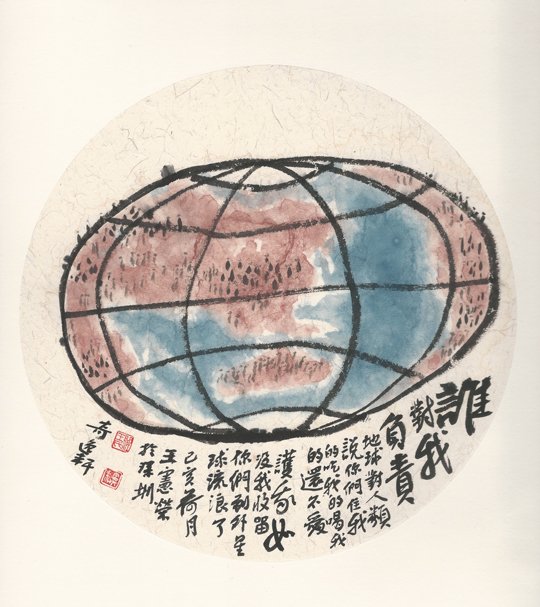 誰
對我
負責
地球對人類
說你們住我
的吃我的喝我
的還不愛
護我如
沒我收留
你們到外星
球流浪了
己亥荷月
王憲榮
於深圳